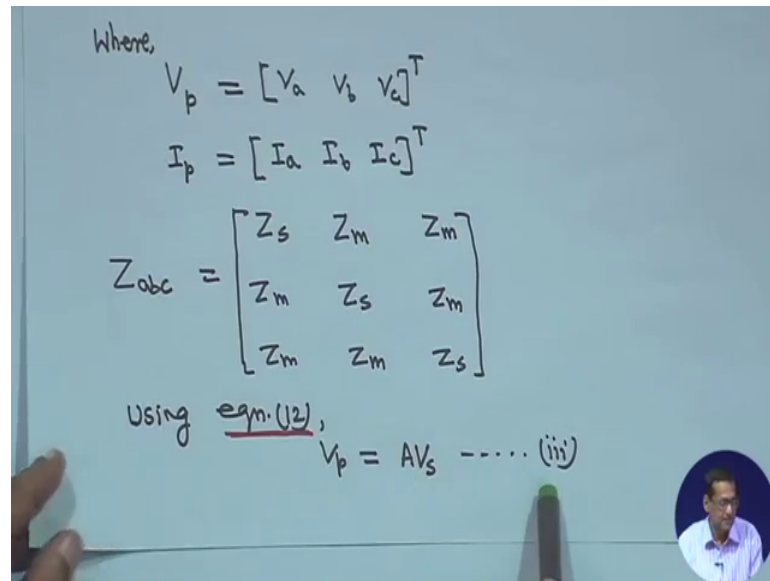 Where,
Vp = [Va Vb Vc]ᵀ
Ip = [Ia Ib Ic]ᵀ
Zabc = [Zs Zm Zm
Zm Zs Zm
Zm Zm Zs]
Using eqn.(12),
Vp = AVs ----- (iii)